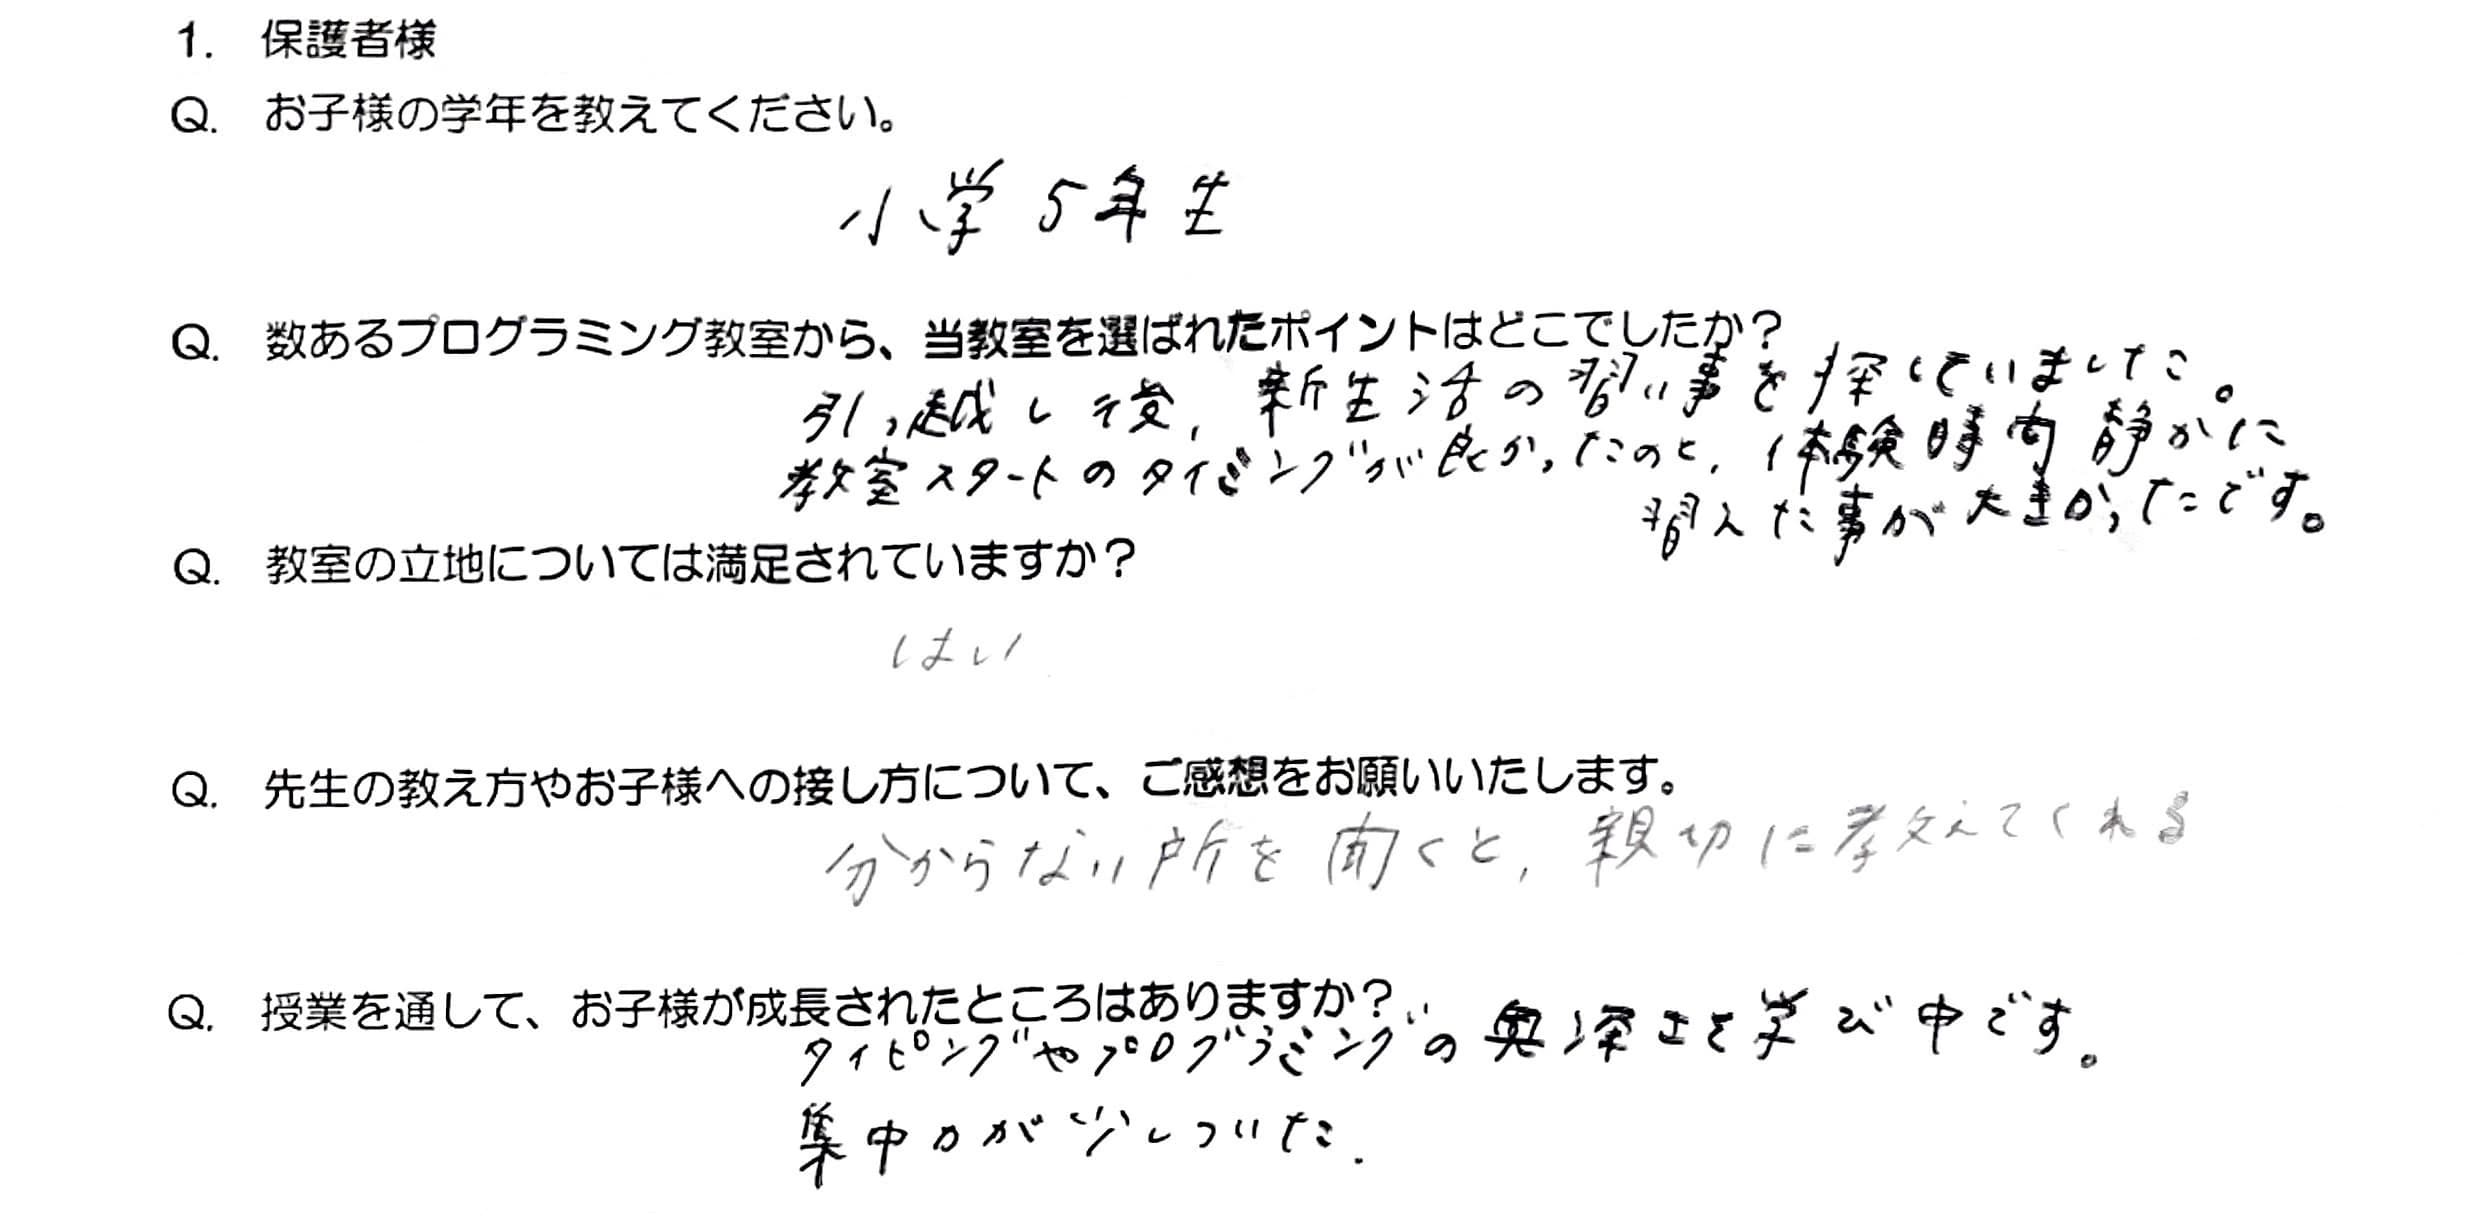 1. 保護者様
Q. お子様の学年を教えてください。
小学5年生
Q. 数あるプログラミング教室から、当教室を選ばれたポイントはどこでしたか？
引っ越し後、新生活の習い事を探していました。
教室スタートのタイミングが良かったのと、体験時間静かに
習えた事が大きかったです。
Q. 教室の立地については満足されていますか？
はい
Q. 先生の教え方やお子様への接し方について、ご感想をお願いいたします。
分からない所を聞くと、親切に教えてくれる
Q. 授業を通して、お子様が成長されたところはありますか？
タイピングやプログラミングの奥深さを学び中です。
集中力が少しついた.